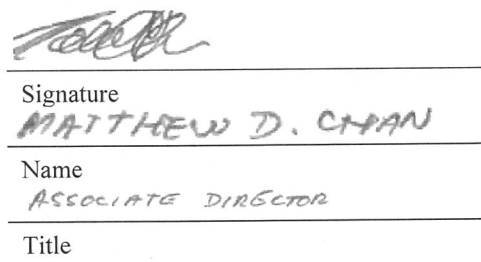 Signature
MATTHEW D. CHAN
Name
ASSOCIATE DIRECTOR
Title